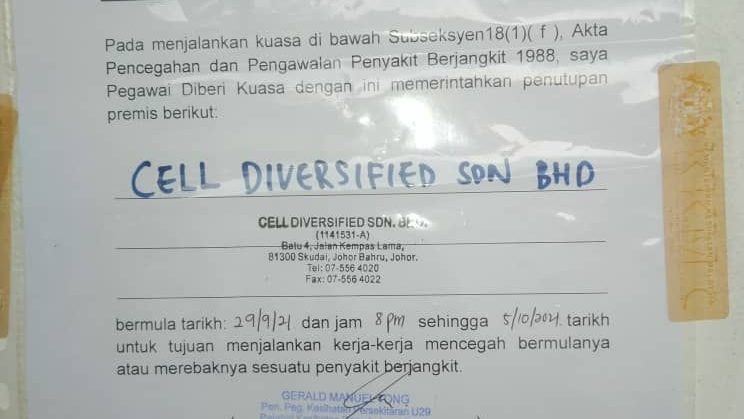 Pada menjalankan kuasa di bawah Subseksyen18(1)( f ), Akta
Pencegahan dan Pengawalan Penyakit Berjangkit 1988, saya
Pegawai Diberi Kuasa dengan ini memerintahkan penutupan
premis berikut:
CELL DIVERSIFIED SDN BHD
CELL DIVERSIFIED SDN. BHD.
(1141531-A)
Batu 4, Jalan Kempas Lama,
81300 Skudai, Johor Bahru, Johor.
Tel: 07-556 4020
Fax: 07-556 4022
bermula tarikh: 29/9/21 dan jam 8pm sehingga 5/10/2021. tarikh
untuk tujuan menjalankan kerja-kerja mencegah bermulanya
atau merebaknya sesuatu penyakit berjangkit.
GERALD MANUEL
Pen. Peg. Kesihatan Persekitaran U29